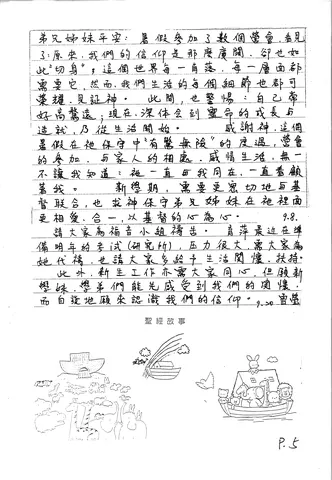 弟兄姊妹平安：暑假參加了數個營會,看見
了原來,我們的信仰是那麼廣闊,卻也如
此"切身"。這個世界每一角落、每一層面都
需要它,然而,我們生活的每個細節也都可
榮耀、見証神。 此間,也警惕：自己常
好高騖遠；現在,深体会到靈命的成長与
造就,乃從生活開始。 感謝神,這個
暑假在祂保守中"有驚無險"的度過,營會
的參加、与家人的相處、感情生活,無一
不讓我知道：祂一直与我同在、一直看顧
著我。 新學期,需要更密切地与基
督联合,也求神保守弟兄姊妹在祂裡面
更相愛、合一,以基督的心為心。 9.8.
請大家為福音小組禱告。 最近在準
備明年的考試(研究所),压力很大,需大家為
她代禱,也請大家多給予生活関懷、扶持。
此外,新生工作亦需大家同心,但願新
學妹、學弟們能先感受到我們的関懷,
而自發地願來認識我們的信仰。 9.20
聖經故事
P.5